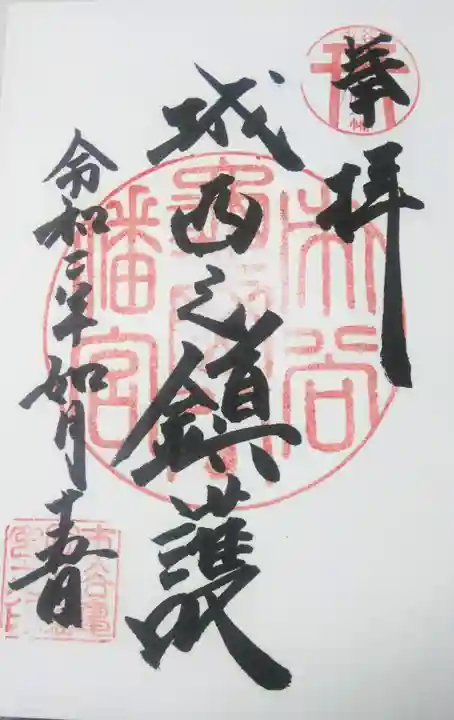 奉拝
城西之鎮護
令和三年如月
市谷
幡宮